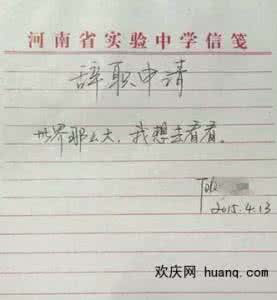 河南省实验中学信笺
辞职申请
世界那么大，我想去看看。
2015.4.13
欢庆网 huanq.com